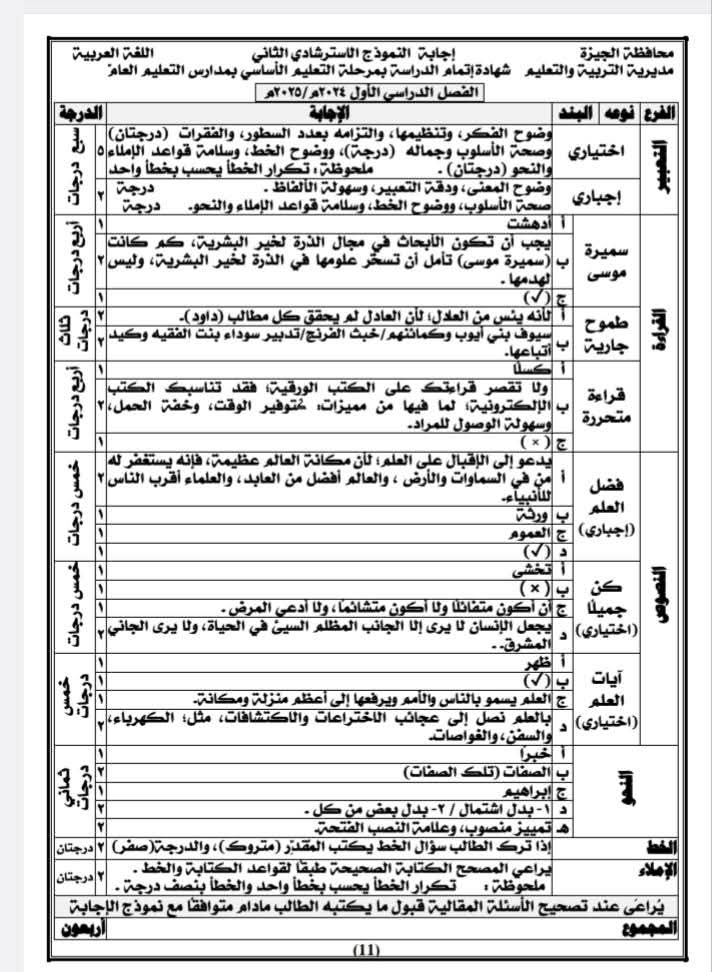 محافظة الجيزة إجابة النموذج الاسترشادي الثاني اللغة العربية
مديرية التربية والتعليم شهادة إتمام الدراسة بمرحلة التعليم الأساسي بمدارس التعليم العام
الفصل الدراسي الأول ٢٠٢٤م/٢٠٢٥م
الفرع نوعه البند الإجابة الدرجة
التعبير
اختياري
وضوح الفكر، وتنظيمها، والتزامه بعدد السطور، والفقرات (درجتان)
وصحة الأسلوب وجماله (درجة)، ووضوح الخط، وسلامة قواعد الإملاء ٥
والنحو (درجتان) . ملحوظة: تكرار الخطأ يحسب بخطأ واحد
سبع درجات
إجباري
وضوح المعنى، ودقة التعبير، وسهولة الألفاظ . درجة ٢
صحة الأسلوب، ووضوح الخط، وسلامة قواعد الإملاء والنحو. درجة
القراءة
سميرة موسى
أ أدهشت ١
ب يجب أن تكون الأبحاث في مجال الذرة لخير البشرية، كم كانت
(سميرة موسى) تأمل أن تسخر علومها في الذرة لخير البشرية، وليس ٢
لهدمها .
ج (√) ١
أربع درجات
طموح جارية
أ لأنه يئس من العلال؛ لأن العادل لم يحقق كل مطالب (داود). ٢
ب سيوف بني أيوب وكمائنهم/خبث الفرنج/تدبير سوداء بنت الفقيه وكيد ٢
أتباعها.
ثلاث درجات
قراءة متحررة
أ كسلًا ١
ب ولا تقصر قراءتك على الكتب الورقية؛ فقد تناسبك الكتب
الإلكترونية؛ لما فيها من مميزات: كتوفير الوقت، وخفة الحمل، ٢
وسهولة الوصول للمراد.
ج (×) ١
أربع درجات
النصوص
فضل العلم (إجباري)
أ يدعو إلى الإقبال على العلم؛ لأن مكانة العالم عظيمة، فإنه يستغفر له
من في السماوات والأرض ، والعالم أفضل من العابد، والعلماء أقرب الناس ٢
للأنبياء.
ب ورثة ١
ج العموم ١
د (√) ١
خمس درجات
كن جميلًا (اختياري)
أ تخشى ١
ب (×) ١
ج أن أكون متفائلًا ولا أكون متشائمًا، ولا أدعي المرض . ١
د يجعل الإنسان لا يرى إلا الجانب المظلم السيئ في الحياة، ولا يرى الجاني ٢
المشرق..
خمس درجات
آيات العلم (اختياري)
أ ظهر ١
ب (√) ١
ج العلم يسمو بالناس والأمم ويرفعها إلى أعظم منزلة ومكانة. ١
د بالعلم نصل إلى عجائب الاختراعات والاكتشافات، مثل: الكهرباء، ٢
والسفن، والغواصات.
خمس درجات
النحو
أ خبرًا ١
ب الصفات (تلك الصفات) ٢
ج إبراهيم ١
د ١- بدل اشتمال / ٢- بدل بعض من كل . ٢
هـ تمييز منصوب، وعلامة النصب الفتحة. ٢
ثماني درجات
الخط إذا ترك الطالب سؤال الخط يكتب المقدّر (متروك)، والدرجة (صفر) ٢ درجتان
الإملاء يراعي المصحح الكتابة الصحيحة طبقًا لقواعد الكتابة والخط . ٢ درجتان
ملحوظة : تكرار الخطأ يحسب بخطأ واحد والخطأ بنصف درجة .
يُراعى عند تصحيح الأسئلة المقالية قبول ما يكتبه الطالب مادام متوافقًا مع نموذج الإجابة
المجموع أربعون
(11)